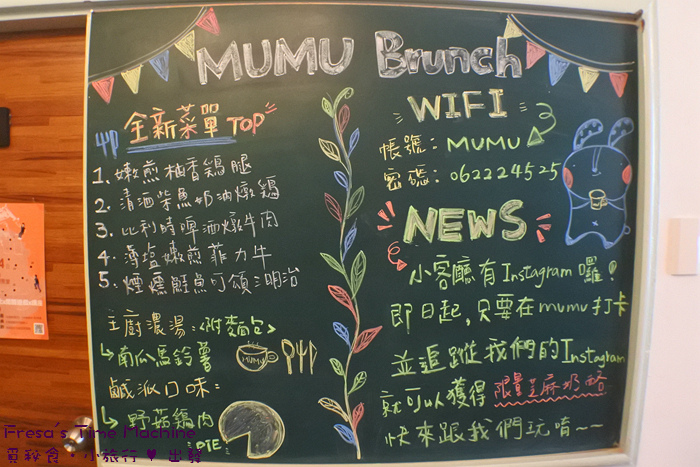 MUMU Brunch
全新菜單 TOP
1. 嫩煎柚香鷄腿
2. 清酒柴魚奶油燉鷄
3. 比利時啤酒燉牛肉
4. 海塩嫩煎菲力牛
5. 煙燻鮭魚可頌三明治
主廚濃湯:<附麵包>
南瓜馬鈴薯
MUMU
鹹派口味:
野菇鷄肉
PIE
WIFI
帳號: MUMU
密碼: 062224525
NEWS
小客廳有Instagram囉!
即日起,只要在mumu打卡
並追蹤我們的Instagram
就可以獲得 限量芝麻奶酪
快來跟我們玩唷~~
Fresa's Time Machine
覓殺食·小旅行♥出發